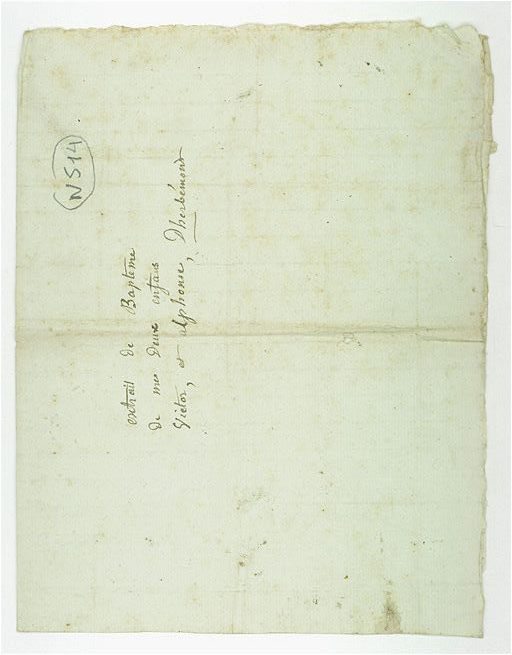 N514
extrait de Bapteme
de mes deux enfans
Victor, et alphonse, Dherbémont